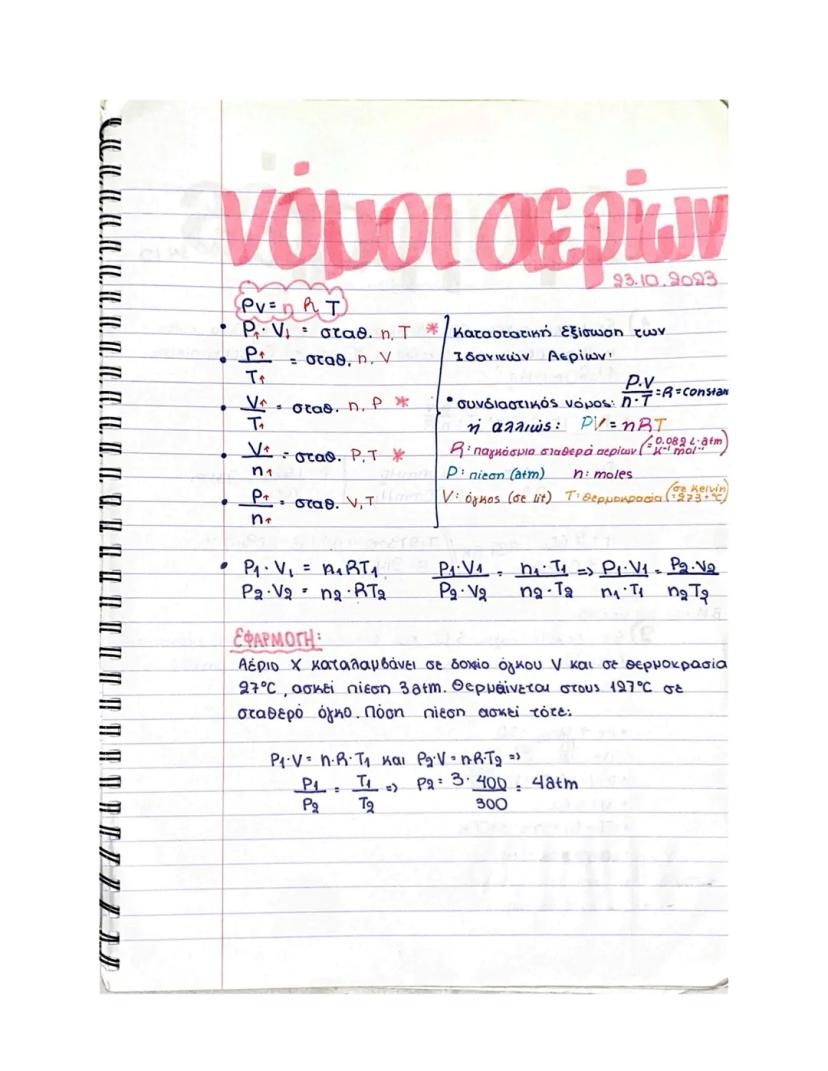 νόμοι αερίων
23.10.2023
PV = n R T
• P↑ · V↓ = σταθ. n, T *
• P↑ / T↑ = σταθ. n, V
V↑ / T↑ = σταθ. n, P *
V↑ / n↑ = σταθ. P, T *
• P↑ / n↑ = σταθ. V, T
Καταστατική Εξίσωση των
Ιδανικών Αερίων:
• συνδιαστικός νόμος: P.V / n.T = R = constan
ή αλλιώς: PV = nRT
R: παγκόσμια σταθερά αερίων (= 0.082 L·atm K⁻¹ mol⁻¹)
P: πίεση (atm) n: moles
V: όγκος (σε lit) T: θερμοκρασία (σε kelvin 273+°C)
• P1 · V1 = n1 RT1
P2 · V2 = n2 · RT2
P1·V1 / P2·V2 = n1·T1 / n2·T2 => P1·V1 / n1·T1 = P2·V2 / n2T2
ΕΦΑΡΜΟΓΗ:
Αέριο Χ καταλαμβάνει σε δοχίο όγκου V και σε θερμοκρασία
27°C, ασκεί πίεση 3atm. Θερμαίνεται στους 127°C σε
σταθερό όγκο. Πόση πίεση ασκεί τότε;
P1·V = n·R·T1 και P2·V = n·R·T2 =>
P1 / P2 = T1 / T2 => P2 = 3 · 400 / 300 = 4atm